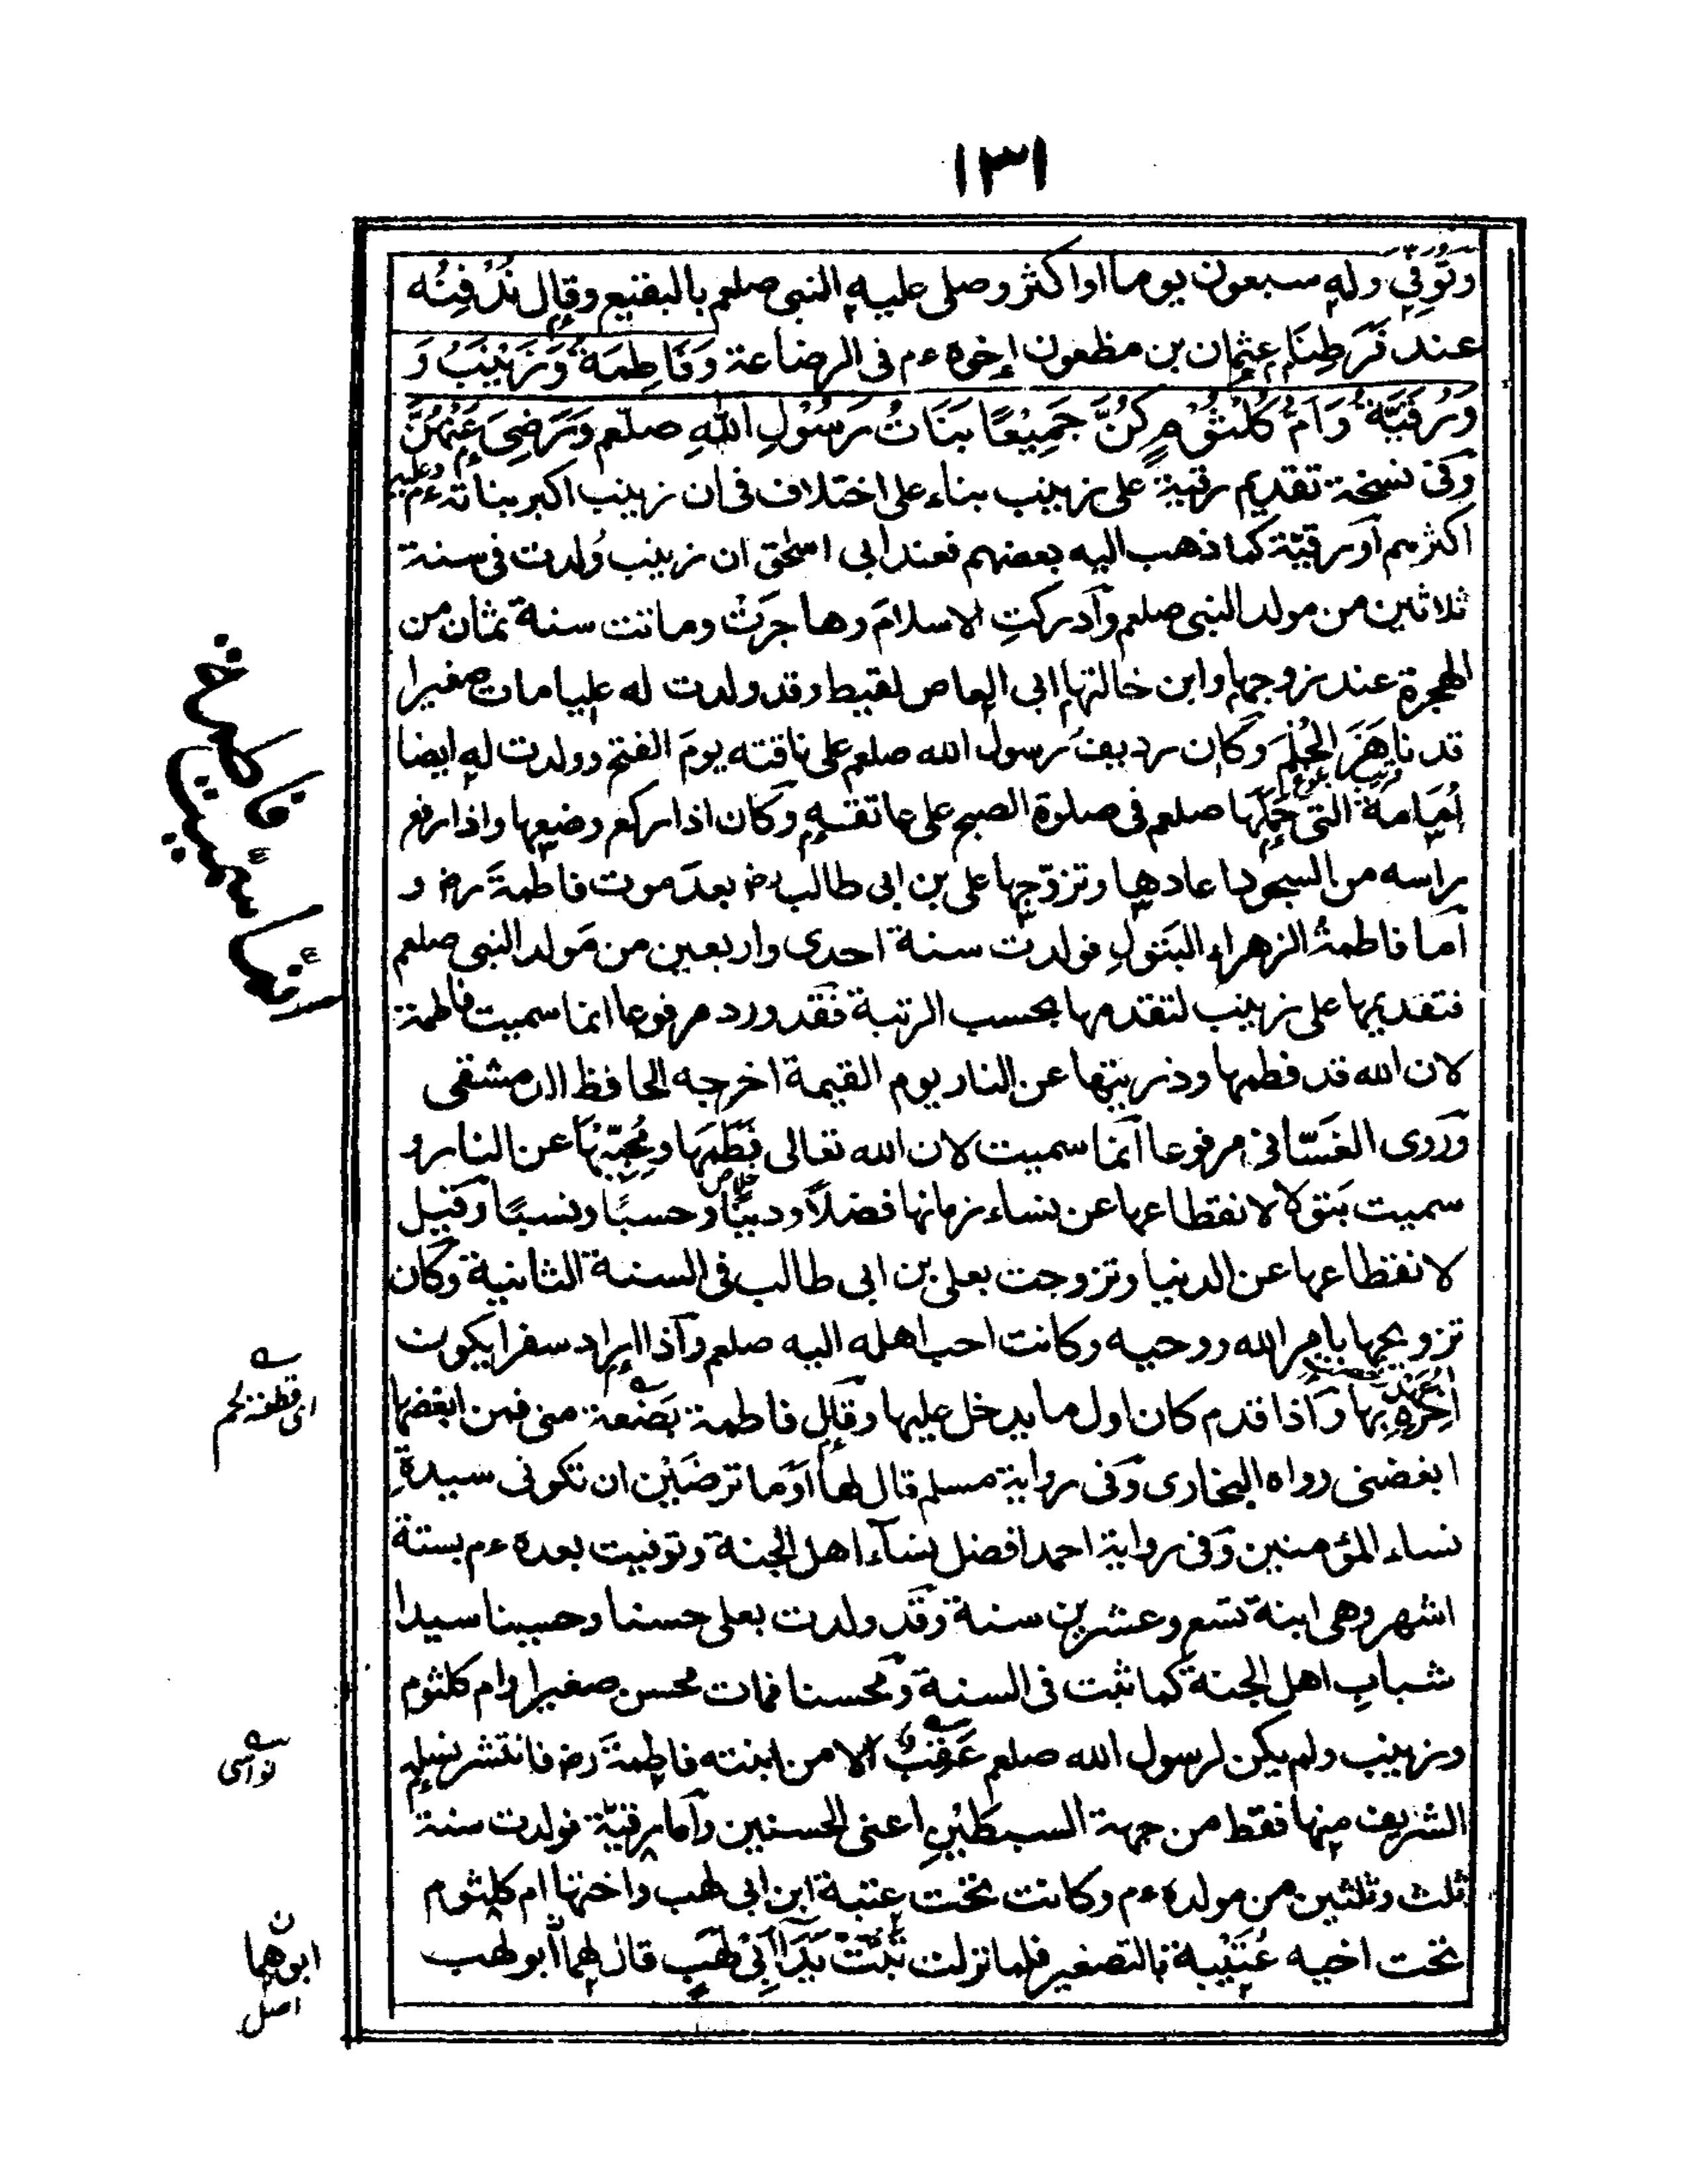 ١٣١
وَتُوُفِّيَ وله سبعون يوما او اكثر وصلى عليه النبى صلعم بالبقيع وقال نَدْفِنُه
عند فَرَطِنَا عثمان بن مظعون اخوه ءم فى الرضاعة وَفَاطِمَةُ وَزَيْنَبُ وَ
وَرُقَيَّةُ وَاُمُّ كُلْثُوْمٍ كُنَّ جَمِيْعًا بَنَاتُ رَسُوْلِ اللهِ صلّعم وَرَضِىَ عَنْهُنَّ
وفى نسخة تقديم رقية على زينب بناء على اختلاف فى ان زينب اكبر بناته ءم وعليه
اكثرهم اَو رقيّة كما ذهب اليه بعضهم فعند ابى اسحٰق ان زينب وُلدت فى سنة
ثلاثين من مولد النبى صلعم وَاَدركتِ الاسلامَ وهاجَرَتْ وماتت سنة ثمان من
الهجرة عند زوجها وابن خالتها ابى العاص لقيط وقد ولدت له عليا مات صغيرا
قد ناهَزَ الحُلُمَ وكان رديفُ رسول الله صلعم على ناقته يومَ الفتح وولدت له ايضا
قريب بلوغ
اُمَامةُ التى حَمَلَها صلعم فى صلوة الصبح على عاتقه وكان اذا ركع وضعها واذا رفع
راسه من السجود اعادها وتزوّجها على بن ابى طالب رض بعدَ موت فاطمةَ رض و
اَما فاطمةُ الزهراء البَتولِ فولدت سنة احدى واربعين من مَولد النبى صلعم
فتقديمها على زينب لتقدمها بحسب الرتبة فَقَد ورد مرفوعا انما سميت فاطمة
لان الله قد فطمها وذريتها عن النار يوم القيمة اخرجه الحافظ الدمشقى
وَرَوى الغَسّانى مرفوعا اَنما سميت لان الله تعالى فَطَمَهَا ومُحِبّيْهَا عن النار و
سميت بَتولا لانقطاعها عن نساء زمانها فضلًا ودينًا وحسبًا ونسبًا وَقيل
لانقطاعها عن الدنيا وتزوجت بعلى بن ابى طالب فى السنة الثانية وكان
تزويجها بامر الله ووحيه وكانت احب اهله اليه صلعم وَاَذا اراد سفرا يكون
اٰخِرُ عهده بها وَاَذا قدم كان اول ما يدخل عليها وقَال فاطمة بَضْعة منى فمن ابغضها
ابغضنى رواه البخارى وَفى رواية مسلم قال لها اَوَما ترضَيْن ان تكونى سيدةَ
نساء المؤمنين وَفى رواية احمد افضل نسآء اهل الجنة وتوفيت بعده ءم بستة
اشهر وهى ابنة تسع وعشرين سنة وَقَد ولدت بعلى حسنا وحسينا سيدا
شبابِ اهل الجنة كما ثبت فى السنة وَمحسنا فمات محسن صغيرا وام كلثوم
وزينب ولم يكن لرسول الله صلعم عَقِبٌ الا من ابنته فاطمةَ رض فانتشر نسله
الشريف منها فقط من جهة السبطَيْنِ اعنى الحسنين وَاَما رقيّة فولدت سنة
ثلث وثلثين من مولده ءم وكانت تحت عتبة ابن ابى لهب واختها ام كلثوم
تحت اخيه عُتَيْبة بالتصغير فلما نزلت تَبَّتْ يَدَآ اَبِىْ لَهَبٍ قال لهما ابو لهب
فاطمة رض
انما سُمِّيت
اى قطعة لحم
نواسى
ن
ابوهما
اصل